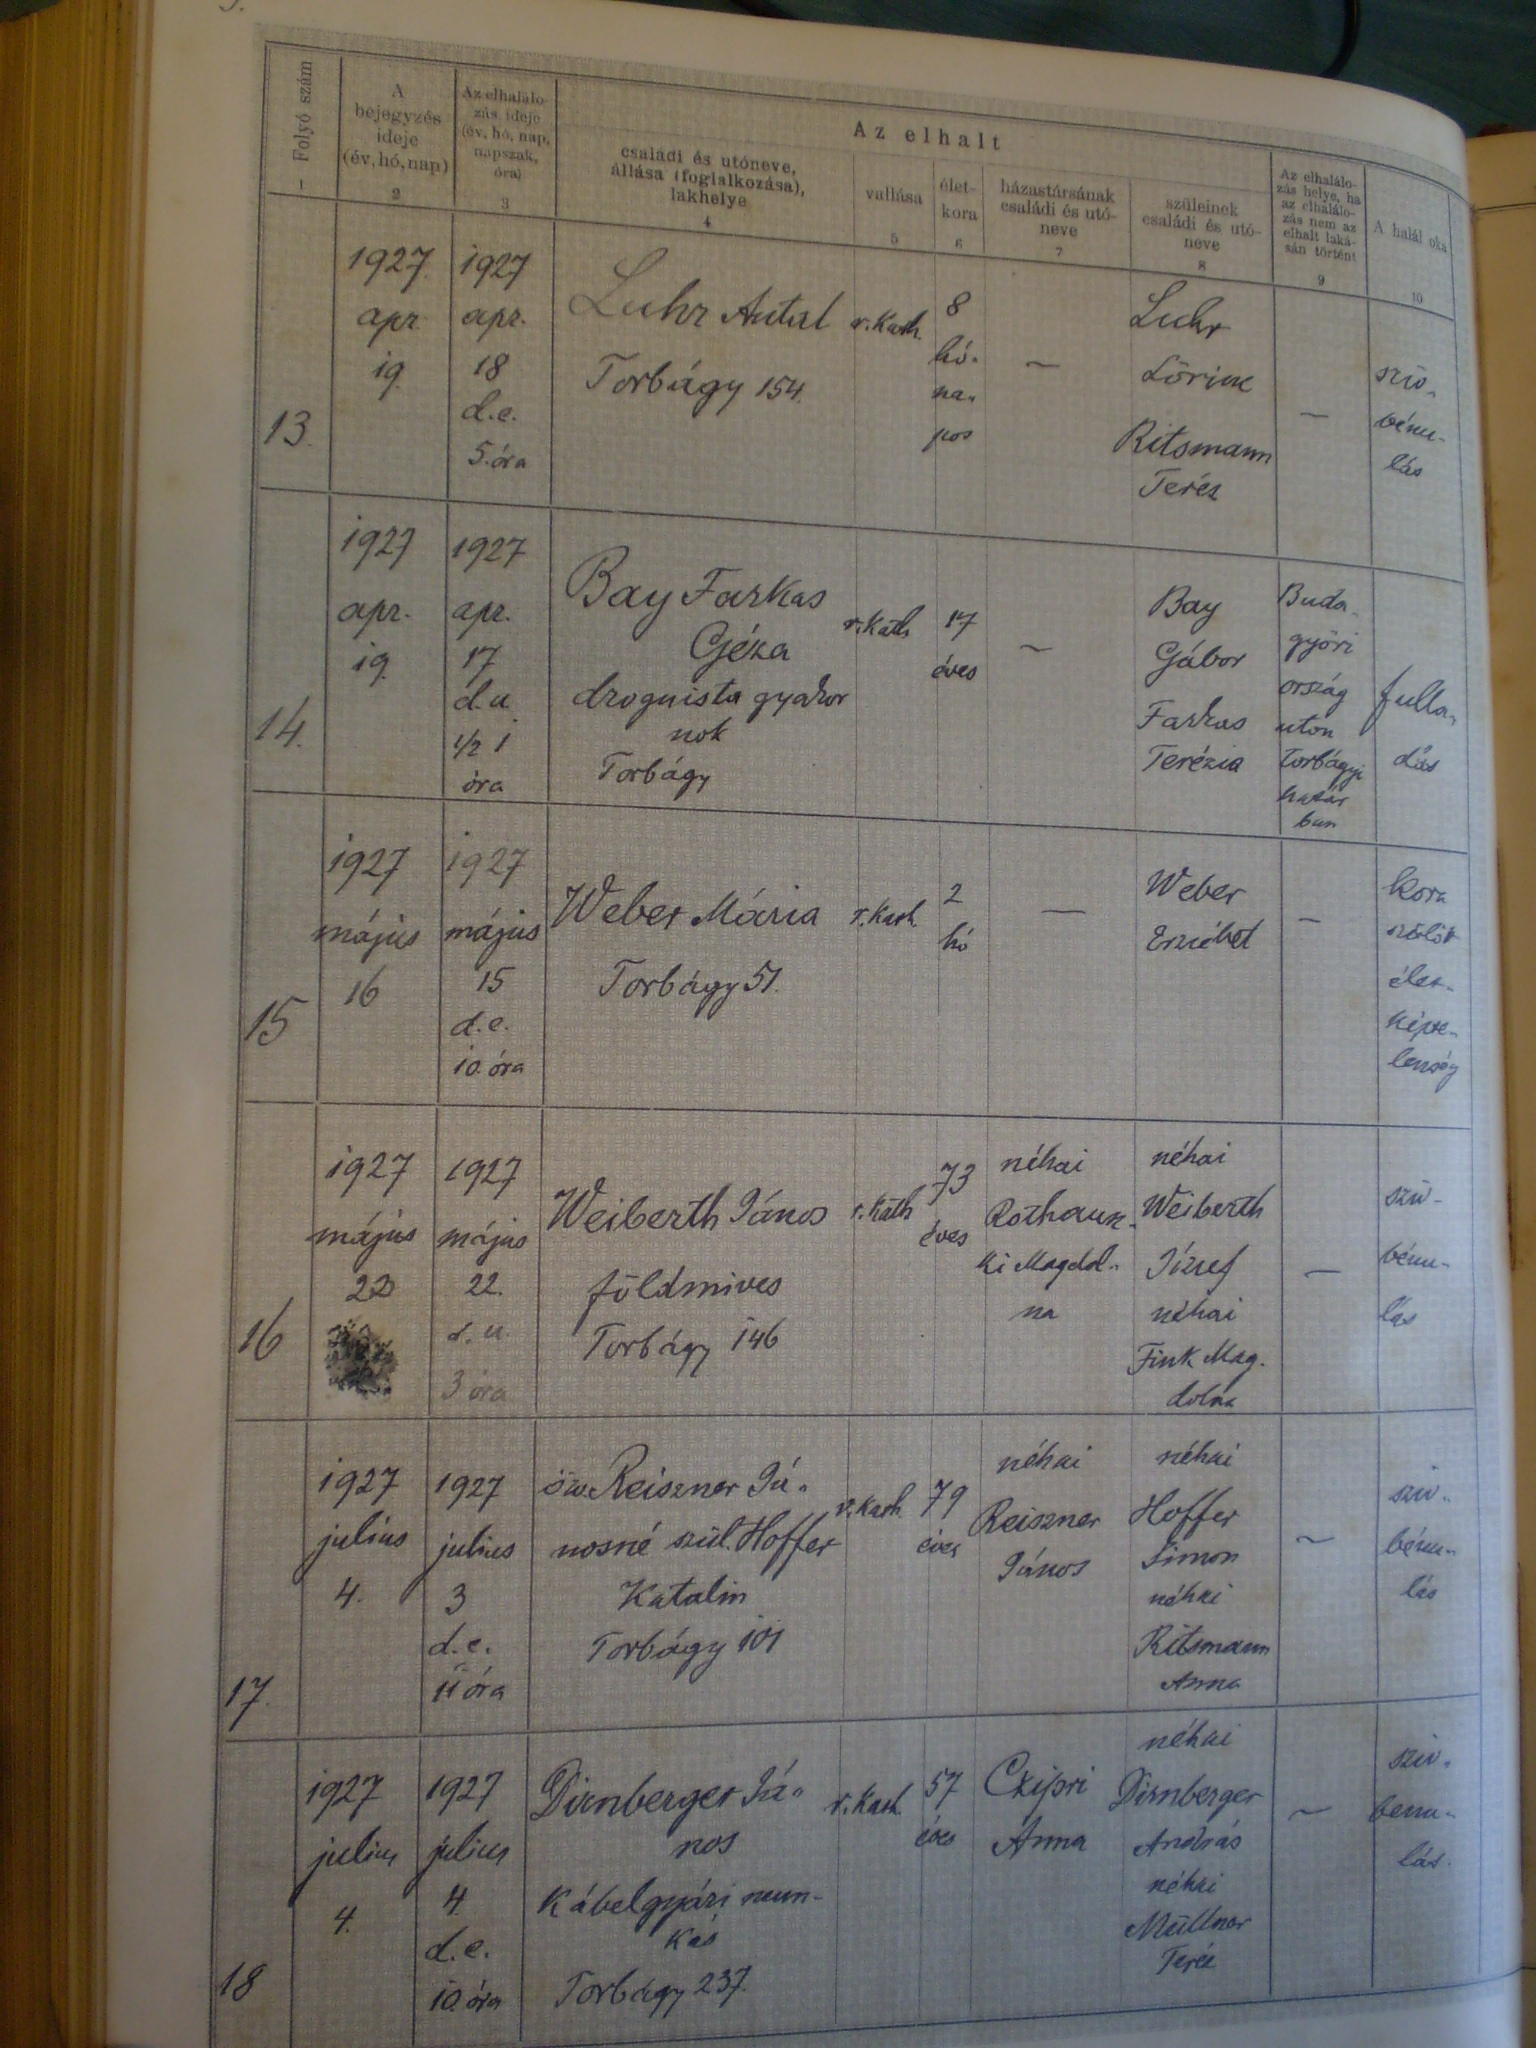 Folyó szám
1
A
bejegyzés
ideje
(év, hó, nap)
2
Az elhalálo-
zás ideje
(év, hó, nap,
napszak,
óra)
3
Az elhalt
családi és utóneve,
állása (foglalkozása),
lakhelye
4
vallása
5
élet-
kora
6
házastársának
családi és utó-
neve
7
szüleinek
családi és utó-
neve
8
Az elhalálo-
zás helye, ha
az elhalálo-
zás nem az
elhalt laká-
sán történt
9
A halál oka
10
13.
1927.
apr.
19.
1927
apr.
18
d.e.
5. óra
Luhr Antal
Torbágy 154.
r. Kath.
8
hó-
na-
pos
—
Luhr
Lőrinc
Ritsmann
Teréz
—
sziv-
bénu-
lás
14.
1927
apr.
19.
1927
apr.
17
d.u.
1/2 1
óra
Bay Farkas
Géza
droguista gyakor
nok
Torbágy
r. Kath
17
éves
—
Bay
Gábor
Farkas
Terézia
Buda-
győri
ország
uton
torbágyi
határ
ban
fulla-
dás
15
1927
május
16
1927
május
15
d.e.
10. óra
Weber Mária
Torbágy 51.
r. Kath.
2
hó
—
Weber
Erzsébet
—
Kora
szülött
élet-
képte-
lenség
16
1927
május
22
1927
május
22.
d.u.
3 óra
Weiberth János
földmives
Torbágy 146
r. Kath
73
éves
néhai
Rothaun-
ki Magdol-
na
néhai
Weiberth
József
néhai
Fink Mag-
dolna
—
sziv-
bénu-
lás
17.
1927
július
4.
1927
július
3
d.e.
11 óra
özv. Reiszner Já-
nosné szül. Hoffer
Katalin
Torbágy 101
r. Kath.
79
éves
néhai
Reiszner
János
néhai
Hoffer
Simon
néhai
Ritsmann
Anna
—
sziv-
bénu-
lás
18
1927
július
4.
1927
július
4.
d.e.
10. óra
Dirnberger Já-
nos
Kábelgyári mun-
kás
Torbágy 237.
r. Kath.
57
éves
Czipri
Anna
néhai
Dirnberger
András
néhai
Müllner
Teréz
—
sziv-
benu-
lás.